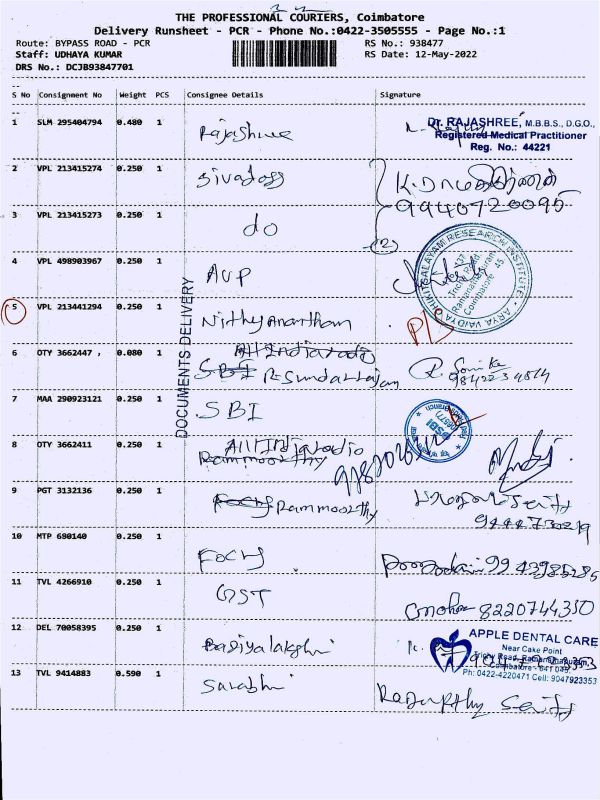 THE PROFESSIONAL COURIERS, Coimbatore
Delivery Runsheet - PCR - Phone No.:0422-3505555 - Page No.:1
Route: BYPASS ROAD - PCR RS No.: 938477
Staff: UDHAYA KUMAR RS Date: 12-May-2022
DRS No.: DCJB93847701
S No Consignment No Weight PCS Consignee Details Signature
1 SLM 295404794 0.480 1 Rajashree
Dr. RAJASHREE, M.B.B.S., D.G.O.,
Registered Medical Practitioner
Reg. No.: 44221
2 VPL 213415274 0.250 1 Sivadoss
9940720095
3 VPL 213415273 0.250 1 do
(2)
4 VPL 498903967 0.250 1 AVP
CHIKITSALAYAM RESEARCH INSTITUTE
ARYA VAIDYA
Trichy Road
Ramanathapuram
Coimbatore 45
DOCUMENTS DELIVERY
5 VPL 213441294 0.250 1 Nithyanantham
6 OTY 3662447 , 0.080 1 All India radio
SBI R Sundarrajan
7 MAA 290923121 0.250 1 SBI
SBI
8 OTY 3662411 0.250 1 All India radio
Rammoorthy
9 PGT 3132136 0.250 1 Focus Rammoorthy
9444730219
10 MTP 680140 0.250 1 Focus
9943985285
11 TVL 4266910 0.250 1 GST
8220744350
12 DEL 70058395 0.250 1
APPLE DENTAL CARE
Near Cake Point
Trichy Road, Ramanathapuram,
Coimbatore - 641 045.
Ph: 0422-4220471 Cell: 9047923353
13 TVL 9414883 0.590 1 Surabhi